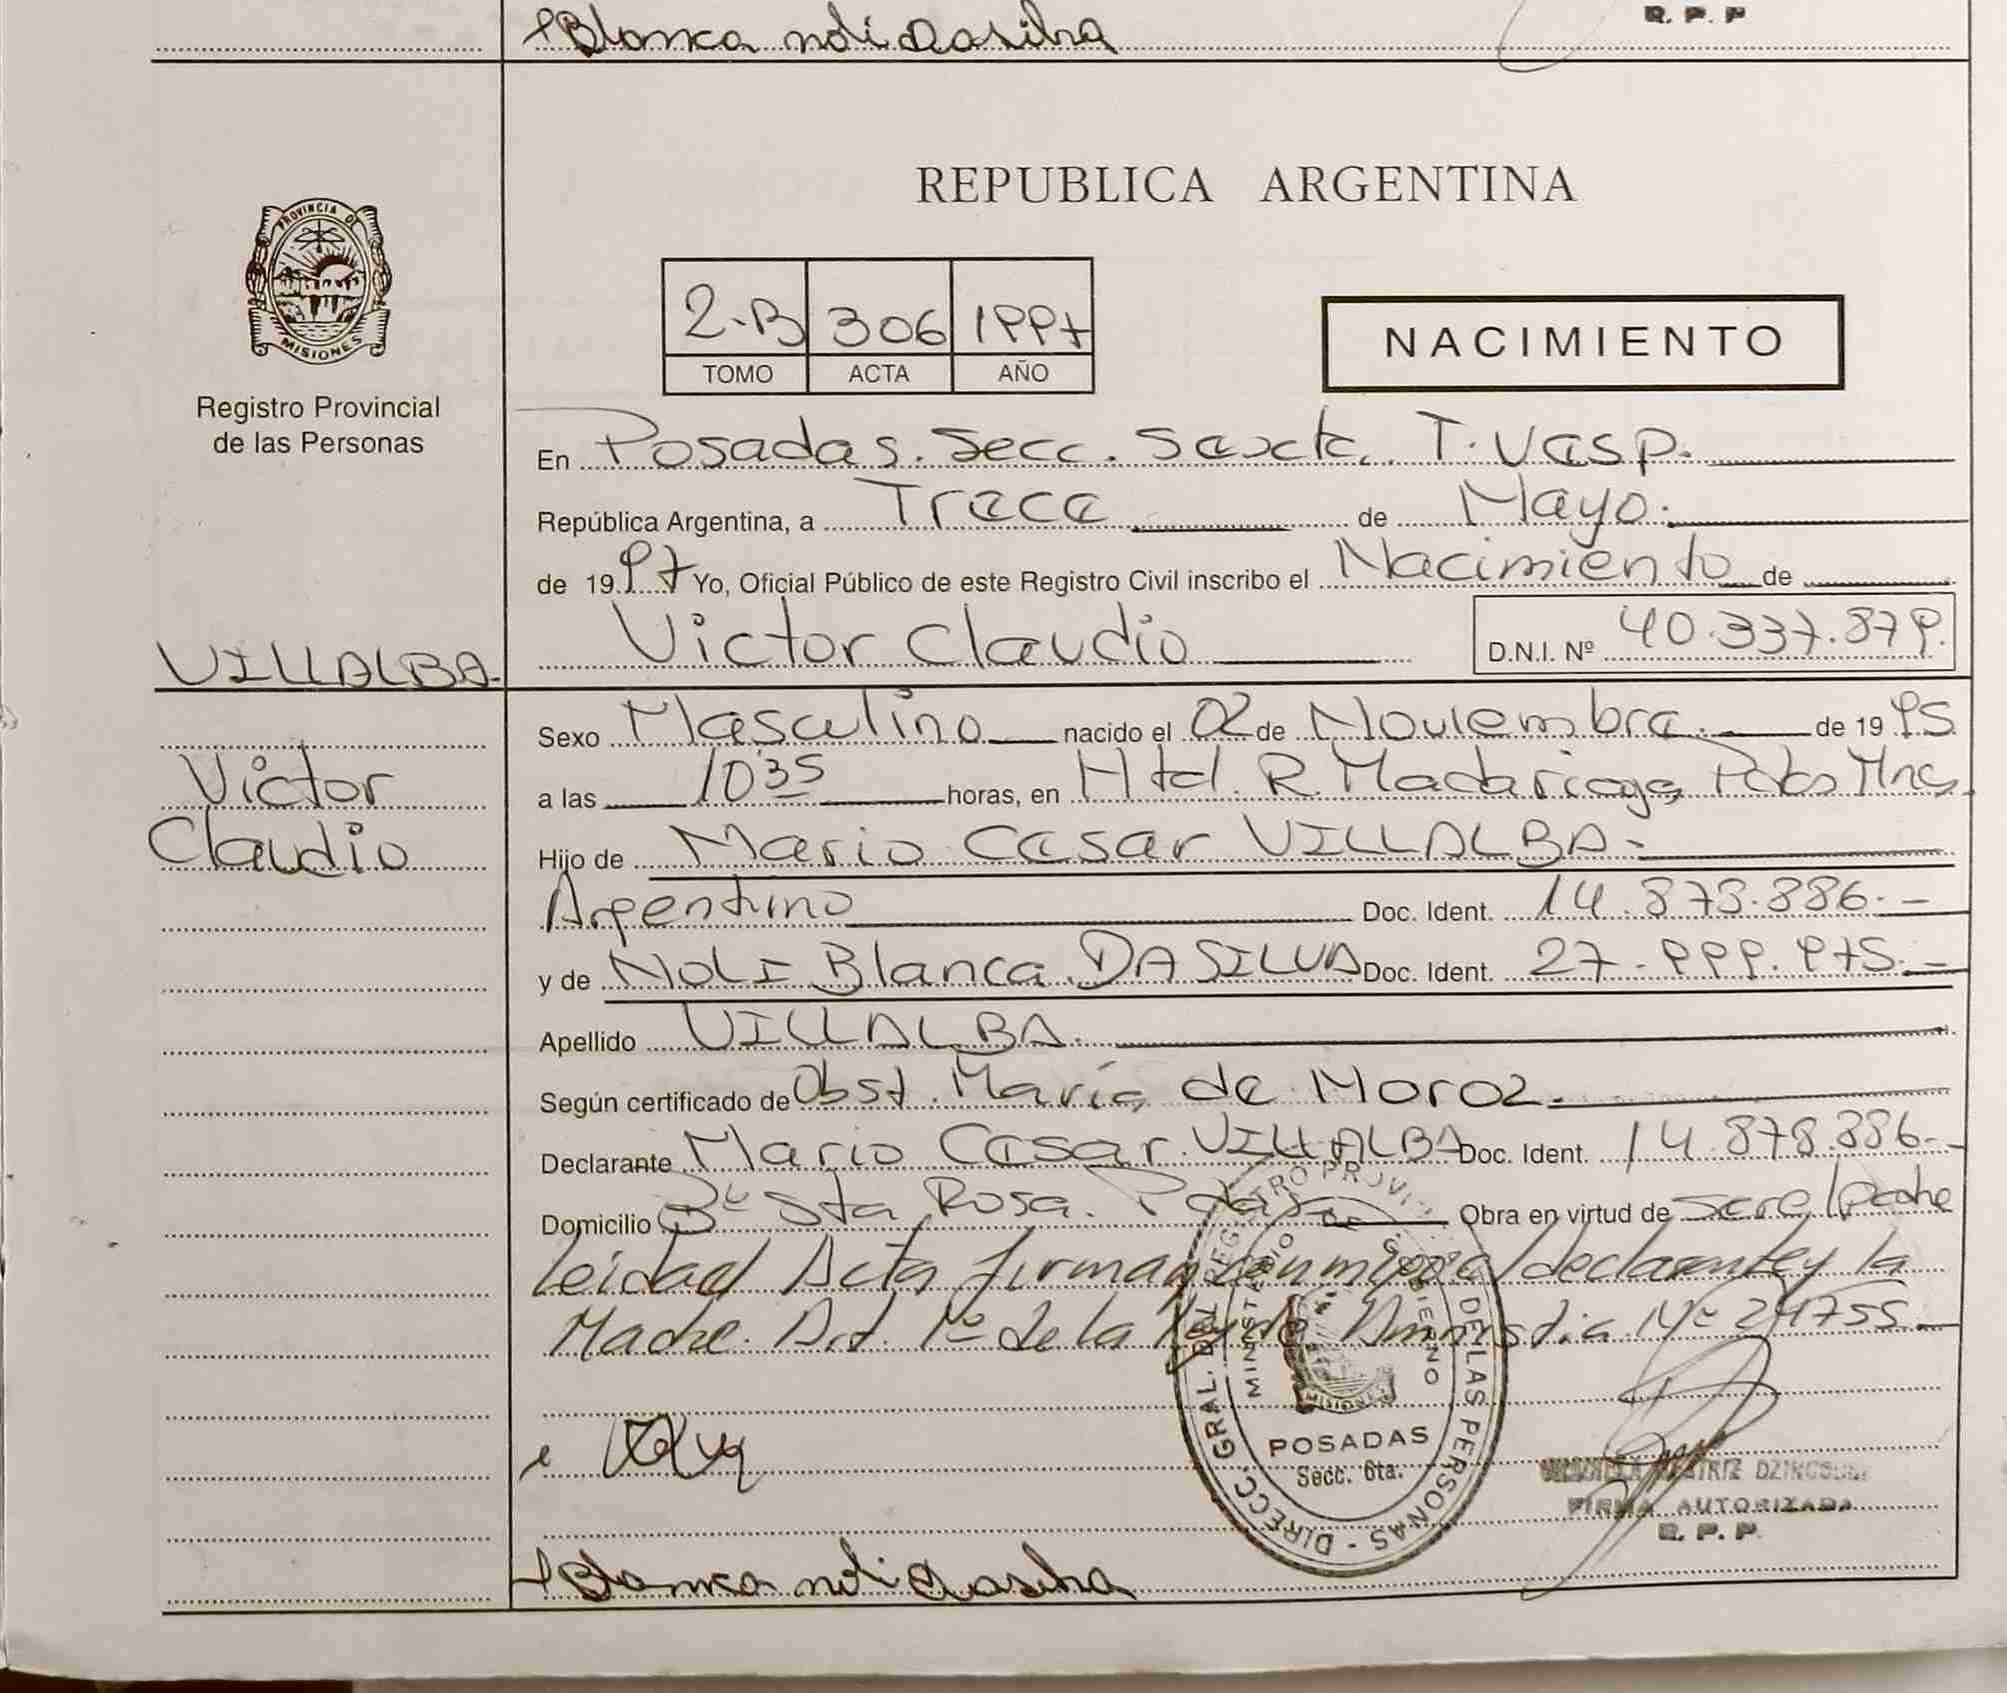 Blanca noli Dasilva
R. P. P
PROVINCIA DE
MISIONES
Registro Provincial
de las Personas
REPUBLICA ARGENTINA
2-B 306 1997
TOMO ACTA AÑO
NACIMIENTO
En Posadas. Secc. Sexta. T. Vesp.
República Argentina, a Trece de Mayo.
de 1997 Yo, Oficial Público de este Registro Civil inscribo el Nacimiento de
Victor Claudio D.N.I. Nº 40.337.879.
VILLALBA.
Victor
Claudio
Sexo Masculino nacido el 02 de Noviembre. de 1995
a las 10:35 horas, en Htal. R. Madariaga Pdas Mnes.
Hijo de Mario Cesar VILLALBA-
Argentino Doc. Ident. 14.878.886.-
y de NOLI Blanca DASILVA Doc. Ident. 27.999.975.-
Apellido VILLALBA.
Según certificado de Obst. María de Moroz.
Declarante Mario Cesar VILLALBA Doc. Ident. 14.878.886.-
Domicilio Bº Sta Rosa. Pdas Obra en virtud de ser el padre
Leida el Acta firman conmigo el declarante y la
Madre. Art. 1º de la Ley de Amnistia Nº 24755-
DIRECC. GRAL. DEL REGISTRO PROVI DE LAS PERSONAS -
MINISTERIO GOBIERNO
MISIONES
POSADAS
Secc. 6ta.
BEATRIZ
FIRMA AUTORIZADA
R. P. P.
Blanca noli Dasilva